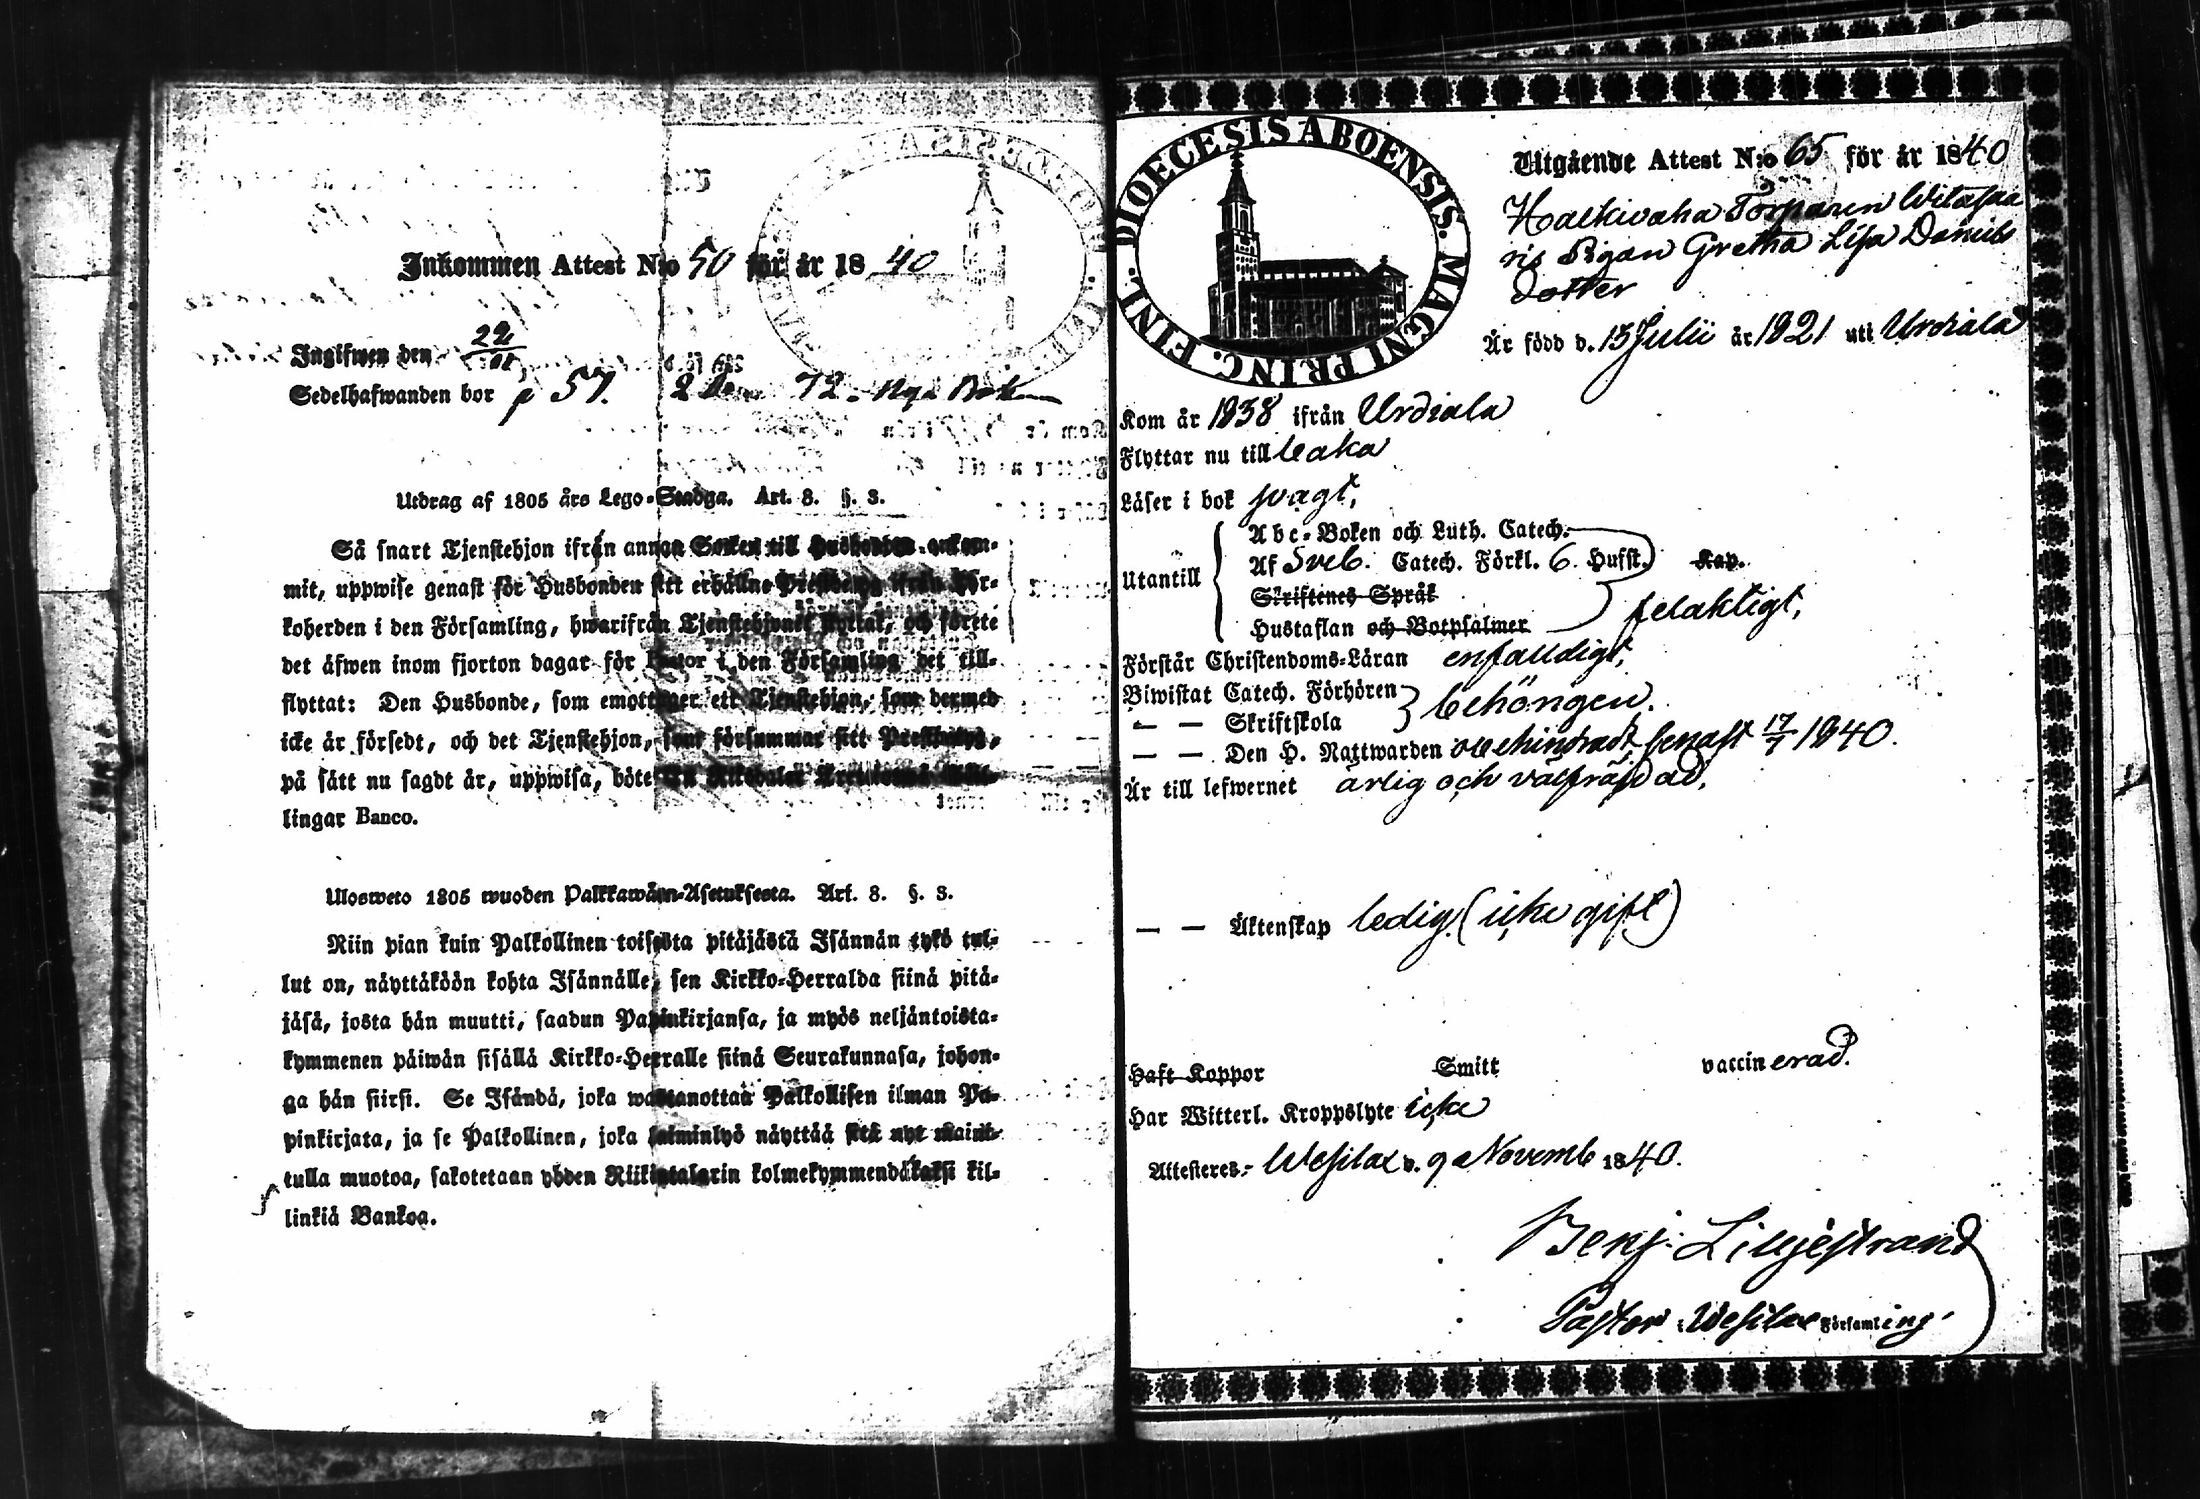 Inkommen Attest N:o 50 för år 1840
Ingifwen den 22/11
Sedelhafwanden bor p 57. 72. Nya Boken
Utdrag af 1805 års Lego-Stadga. Art. 8. §. 3.
Så snart Tjenstehjon ifrån annan Socken till Husbonden ankom-
mit, uppwise genast för Husbonden sitt erhållne Prestbetyg ifrån Kyr-
koherden i den Församling, hwarifrån Tjenstehjonet flyttat, och förete
det äfwen inom fjorton dagar för Pastor i den Församling det till-
flyttat: Den Husbonde, som emottager ett Tjenstehjon, som dermed
icke är försedt, och det Tjenstehjon, som försummar sitt Prestbetyg,
på sätt nu sagdt är, uppwisa, böte En Riksdaler Trettiotwå Skil-
lingar Banco.
Ulosweto 1805 wuoden Palkkawäen-Asetuksesta. Art. 8. §. 3.
Niin pian kuin Palkollinen toisesta pitäjästä Isännän tykö tul-
lut on, näyttäköön kohta Isännälle, sen Kirkko-Herralda siinä pitä-
jäsä, josta hän muutti, saadun Papinkirjansa, ja myös neljäntoista-
kymmenen päiwän sisällä Kirkko-Herralle siinä Seurakunnasa, johon-
ga hän siirsi. Se Isändä, joka wastanottaa Palkollisen ilman Pa-
pinkirjata, ja se Palkollinen, joka laiminlyö näyttää sitä nyt mainit-
tulla muotoa, sakotetaan yhden Riikintalarin kolmekymmendäkaksi kil-
linkiä Bankoa.
DIOECESIS ABOENSIS. MAGNI PRINC. FINL.
Utgående Attest N:o 65 för år 1840
Halkivaha Torparen Witasaa
ris Pigan Gretha Lisa Daniels
dotter
Är född d. 15 Julii år 1821 uti Urdiala
Kom år 1838 ifrån Urdiala
Flyttar nu till Ackas
Läser i bok svagt,
Utantill
Abc-Boken och Luth. Catech.
Af Sveb. Catech. Förkl. 6. Hufst. Kap.
Skriftenes Språk
Hustaflan och Botpsalmer
felaktigt,
Förstår Christendoms-Läran enfalldigt,
Biwistat Catech. Förhören
— — Skriftskola
behörigen.
— — Den H. Nattwarden obehindrad, senast 17/7 1840.
Är till lefwernet ärlig och välfräjdad.
— — Äktenskap ledig (icke gift)
Haft Koppor Smitt vaccinerad.
Har Witterl. Kroppslyte icke
Attesteres: Wesilax d. 9 Novemb 1840.
Benj: Liljestrand
Pastor i Wesilax Församling